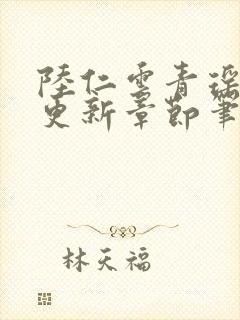 陸仁雲青瑶
更新章節筆
林天福